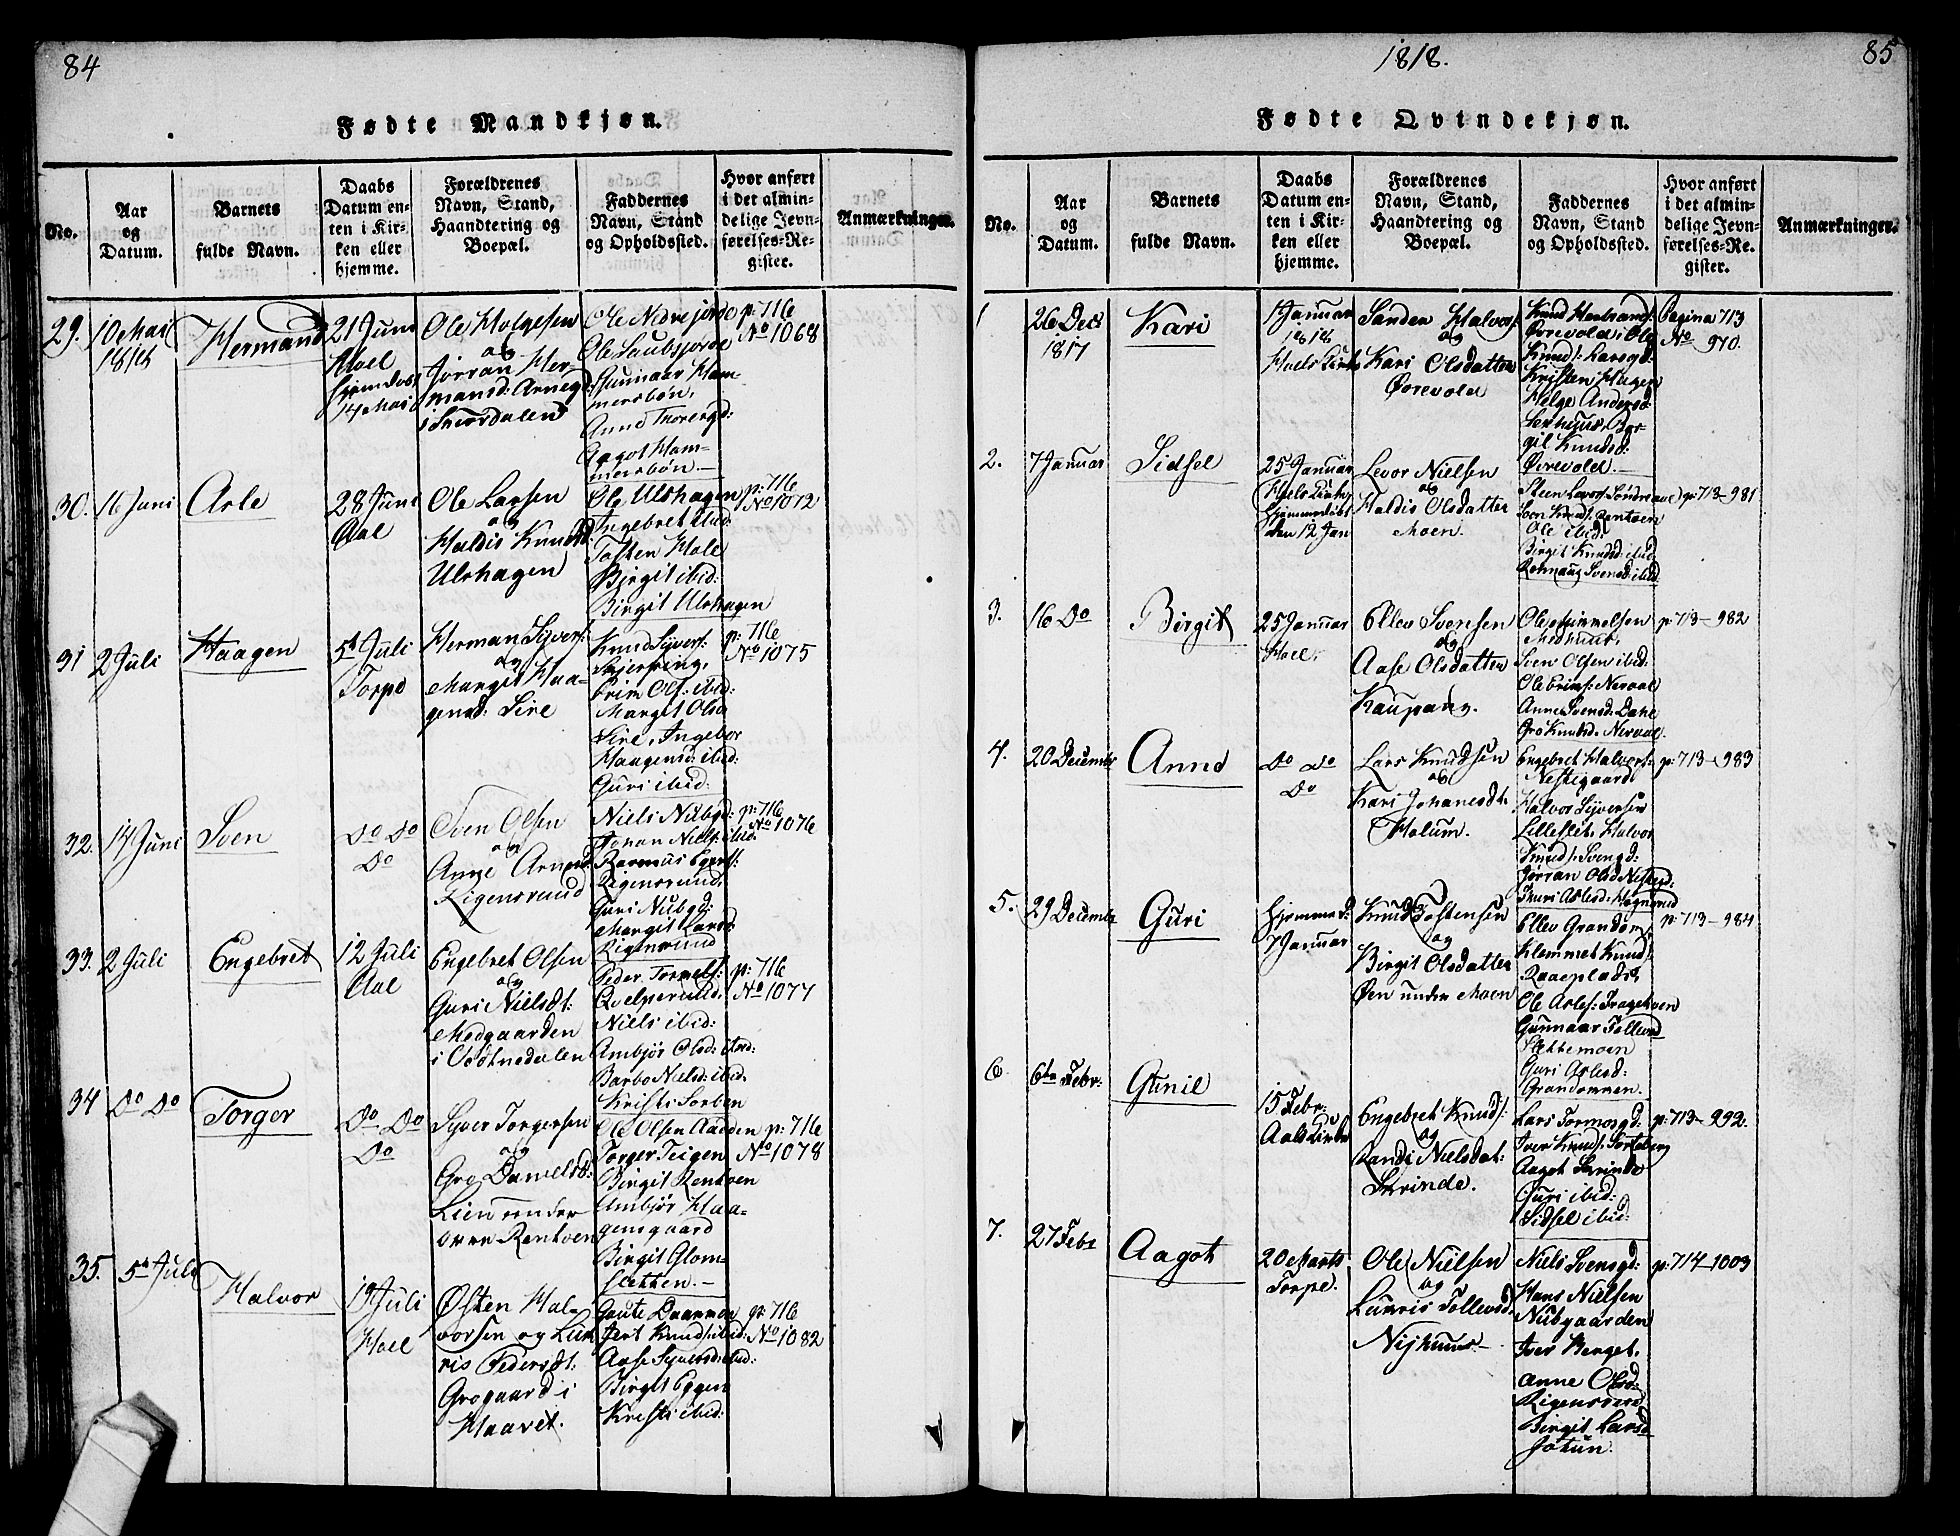 84
Fødte Mandkjøn.
No.
Aar
og
Datum.
Barnets
fulde Navn.
Daabs
Datum en-
ten i Kir-
ken eller
hjemme.
Forældrenes
Navn, Stand,
Haandtering og
Boepæl.
Faddernes
Navn, Stand
og Opholdssted.
Hvor anført
i det almin-
delige Jevn-
førelses-Re-
gister.
Anmærkninger.
29.
10 Mai
1818
Hermand
21 Juni
Hoel
hjemdøbt
14 Mai
Ole Holgesen
og
Jørran Her-
mansd: Arnegd
i Skurdalen
Ole Nedrejorde
Ole Saubsjorde
Gunnaar Ham-
mersbøn,
Anne Thorergd:
Aagot Ham-
mersbøn.
p: 716
No 1068
30.
16 Juni
Asle
28 Juni
Aal
Ole Larsen
og
Haldis Knudsd
Ulshagen
Ole Ulshagen
Ingebret ibid:
Tosten Hole
Birgit ibid:
Birgit Ulshagen
p: 716
No 1072
31
2 Juli
Haagen
5te Juli
Torpe
Herman Syvers:
og
Margit Haa-
gensd: Sire
Knud Syvers:
Skjerping,
Grim Ols: ibid:
Margit Olsd
Sire, Ingebor
Haagensd: ibid:
Guri ibid:
p: 716
No 1075
32.
14 Juni
Sven
Do Do
Do
Sven Olsen
og
Anne Arnesd
Rigensrund
Niels Nubgd:
Johan Niels: ibid:
Rasmus Egers:
Rigensrund,
Guri Nubgd:
Margit Larsd:
Rigensrund
p: 716
No 1076
33.
2 Juli
Engebret
12 Juli
Aal
Engebret Olsen
og
Guri Nielsdt:
Medgaarden
i Vothnedalen
Peder Tormels:
Qvelperud,
Niels ibid:
Ambjør Olsd: ibid:
Barbo Nielsd: ibid,
Kristi Sorben
p: 716
No 1077
34
Do Do
Torger
Do Do
Do
Syver Torgersen
og
Gro Danielsd:
Lien under
øvre Rentoen
Ole Olsen Aaeden
Torger Teigen
Birgit Rentoen
Ambjør Haa-
gensgaard
Birgit Glom-
sletten.
p: 716
No 1078
35.
5te Juli
Halvor
19 Juli
Hoel
Østen Hal-
vorsen og Lun
ris Pedersdt:
Grogaard i
Haavet.
Gaute Daarmen
Jert Knuds: ibid:
Aase Syversd: ibid:
Birgit Eggen
Kristi ibid:
p: 716
No 1082
1818.
85
Fødte Qvindekjøn.
No.
Aar
og
Datum.
Barnets
fulde Navn.
Daabs
Datum en-
ten i Kir-
ken eller
hjemme.
Forældrenes
Navn, Stand,
Haandtering og
Boepæl.
Faddernes
Navn, Stand
og Opholdssted.
Hvor anført
i det almin-
delige Jevn-
førelses-Re-
gister.
Anmærkninger.
1
26 Decb
1817
Kari
1 Januar
1818
Hoels Kirke
Sanden Halvors:
og
Kari Olsdatter
Ørevold
Knud Herbrands:
Ørrevold, Ole
Knuds: Larsgd:
Kristen Hagen
Helge Andersd:
Birgil Knudsd:
Ørrevold.
Pagina 713
No 970.
2.
7 Januar
Sidsel
25 Januar
Hoels Kirke
hjemmedøbt
den 12 Jan
Levor Nielsen
og
Haldis Olsdatter
Moen.
Steen Levors: Søndreaal
Sven Knuds: Rentoen
Ole ibid:
Birgit Knudsd: ibid
Rannaug Svensd: ibid
p: 713-981
3.
16 Do
Birgit
25 Januar
Hoel.
Ellev Svensen
og
Aase Olsdatter
Kaupang.
Ole Himmelsen
Medhuus,
Sven Olsen ibid:
Ole Grims: Neraal
Anne Svensd: Dahl
Gro Knudsd: Neraal.
p: 713-982
4.
20 December
Anne
Do Do
Do
Lars Knudsen
og
Kari Johanesdt:
Holum.
Engebret Halvors:
Nestegaard
Halvor Syversen
Lillestet, Halvor
Knuds: Svengd:
Jørran Olsd Nestegd:
Sturi Aslesd: Hagnerud
p: 713-983
5.
29 December
Guri
Hjemmed:
7 Januar
Knud Tostensen
og
Birgit Olsdatter
Øen under Moen
Ellev Grandom
Klemmet Knuds:
Raaeplads,
Ole Asles: Tragetoen
Gunnaar Tollevsd
Slettemoen
Guri Aslesd:
Grandommen.
p: 713-984
6.
6te Febr:
Gunil
15 Febr:
Aals Kirke
Engebret Knuds:
og
Randi Nielsdat:
Skrinde.
Lars Tormosgd:
Iver Knuds: Torsteberg
Aagot Skrinde
Guri ibid:
Sidsel ibid:
p: 713-992.
7.
27 Febr
Aagot
20 Marts
Torpe.
Ole Nielsen
og
Lunris Tollevsd
Nijhuus
Niels Svensgd:
Hans Nielsen
Nubgaarden
Iver Berget,
Anne Olsd:
Rigensrund
Birgit Larsd
Jotun.
p: 714-1003